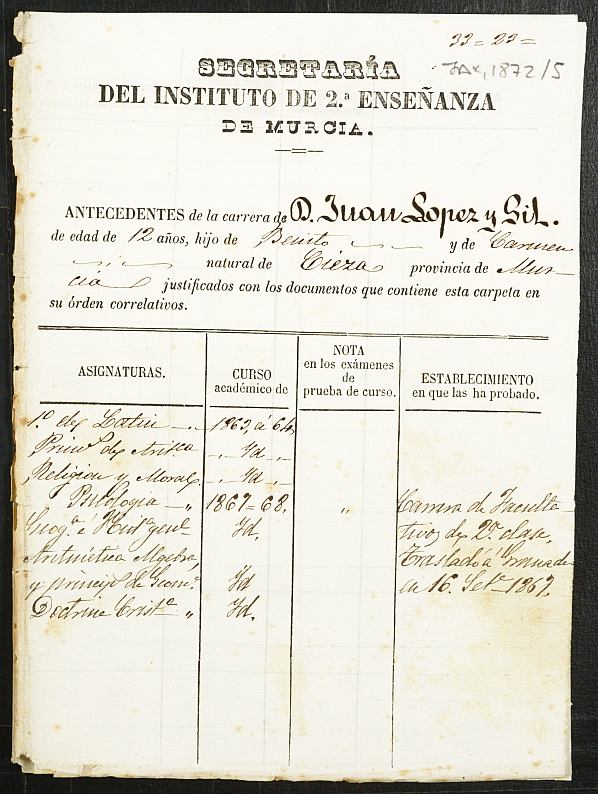 33=23=
JAX,1872/5
SECRETARÍA
DEL INSTITUTO DE 2.ª ENSEÑANZA
DE MURCIA.
ANTECEDENTES de la carrera de D. Juan Lopez y Gil.
de edad de 12 años, hijo de Benito y de Carmen
natural de Cieza provincia de Mur-
cia justificados con los documentos que contiene esta carpeta en
su órden correlativos.
ASIGNATURAS.
CURSO
académico de
NOTA
en los exámenes
de
prueba de curso.
ESTABLECIMIENTO
en que las ha probado.
1º de Latin 1863, á 64,
Princs de Aritca Id
Religion y Moral Id
Psicología 1867=68. "
Geogª é Histª genl Id.
Aritmética Algebra,
y princips de Geomª Id
Doctrina Cristª " Id.
Carrera de Faculta-
tivos de 2ª clase.
Traslado á Granada
en 16. Sete 1867.